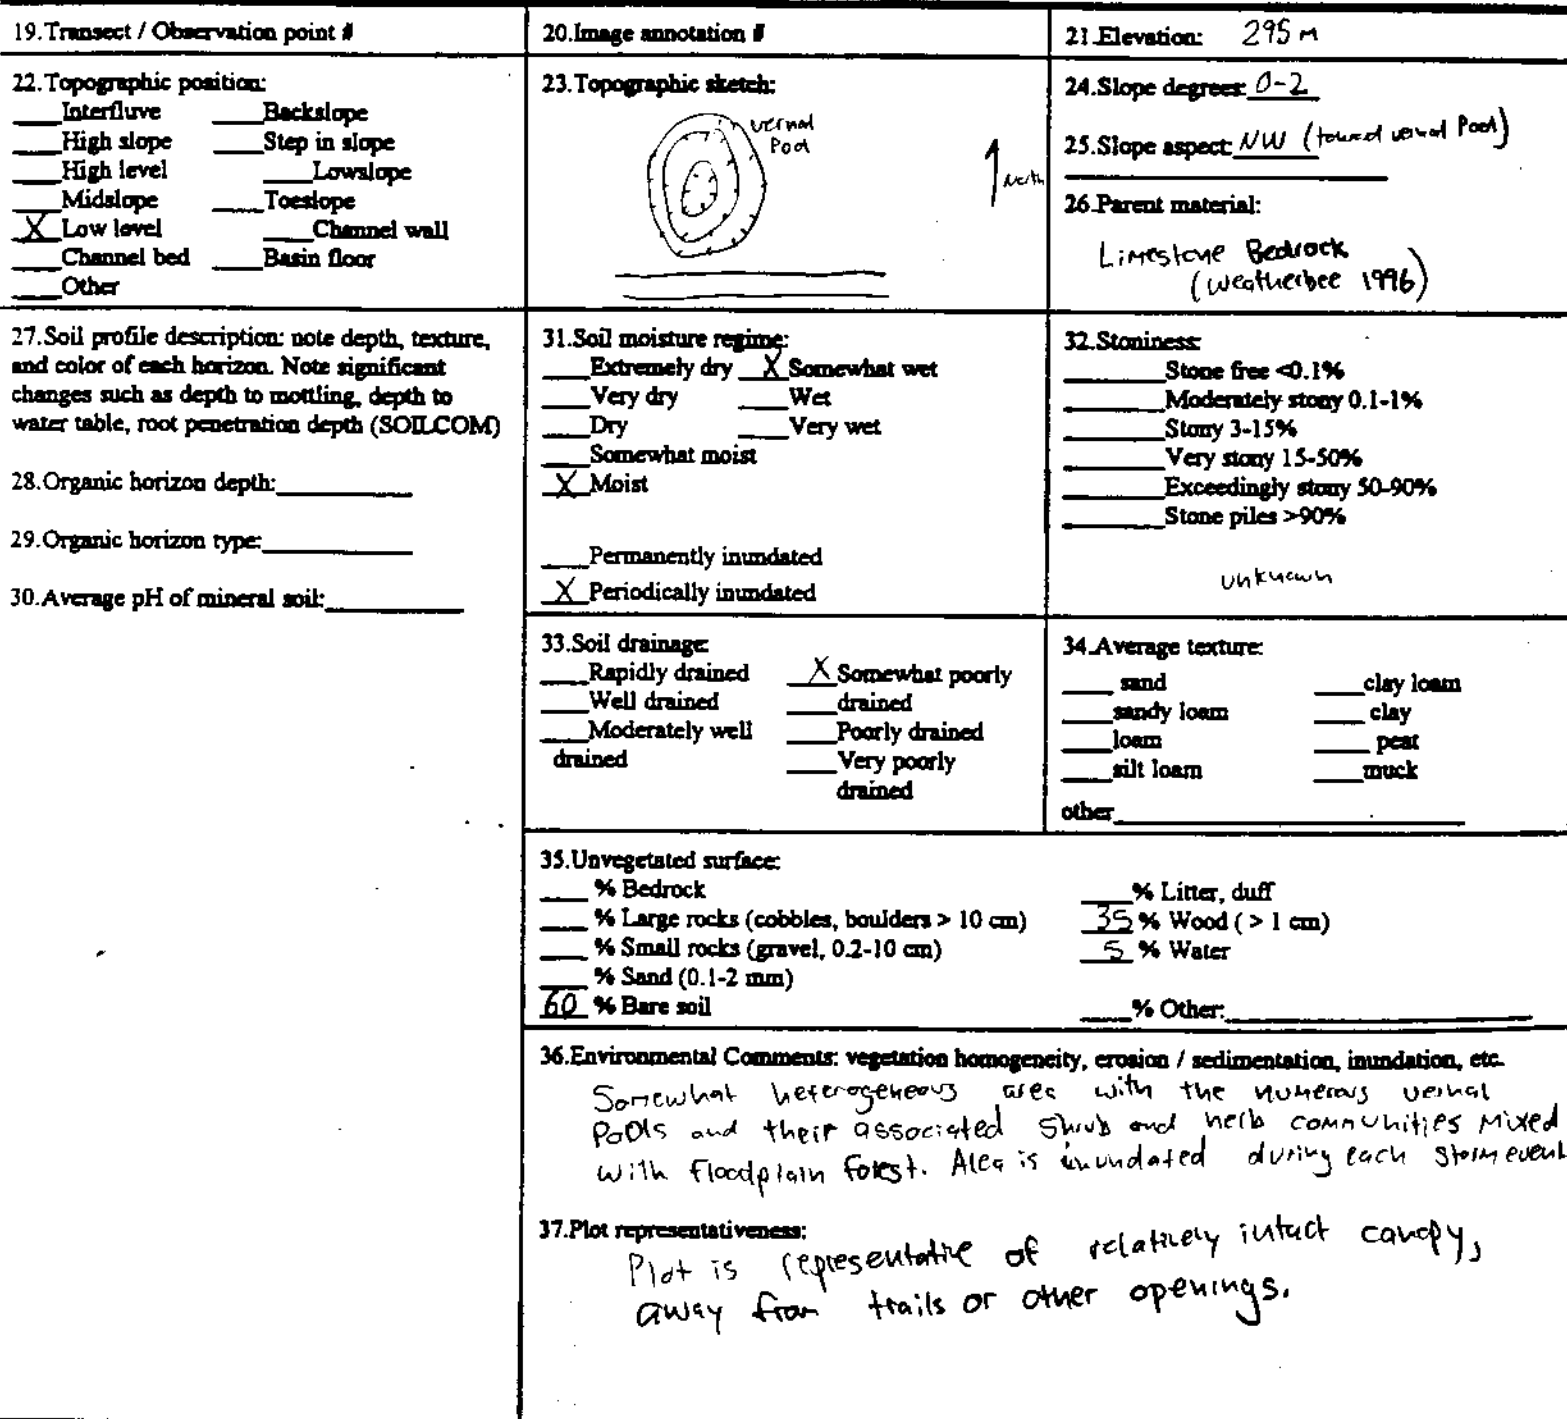 19.Transect / Observation point #
20.Image annotation #
21.Elevation: 295 m
22.Topographic position:
___Interfluve ___Backslope
___High slope ___Step in slope
___High level ___Lowslope
___Midslope ___Toeslope
_X_Low level ___Channel wall
___Channel bed ___Basin floor
___Other
23.Topographic sketch:
vernal
Pool
North
24.Slope degrees: 0-2
25.Slope aspect: NW (toward vernal Pool)
26.Parent material:
Limestone Bedrock
(Weatherbee 1996)
27.Soil profile description: note depth, texture,
and color of each horizon. Note significant
changes such as depth to mottling, depth to
water table, root penetration depth (SOILCOM)
28.Organic horizon depth:__________
29.Organic horizon type:__________
30.Average pH of mineral soil:__________
31.Soil moisture regime:
___Extremely dry _X_Somewhat wet
___Very dry ___Wet
___Dry ___Very wet
___Somewhat moist
_X_Moist
___Permanently inundated
_X_Periodically inundated
32.Stoniness:
______Stone free <0.1%
______Moderately stony 0.1-1%
______Stony 3-15%
______Very stony 15-50%
______Exceedingly stony 50-90%
______Stone piles >90%
unknown
33.Soil drainage:
___Rapidly drained _X_Somewhat poorly
___Well drained ___drained
___Moderately well ___Poorly drained
drained ___Very poorly
drained
34.Average texture:
___sand ___clay loam
___sandy loam ___clay
___loam ___peat
___silt loam ___muck
other__________
35.Unvegetated surface:
___% Bedrock ___% Litter, duff
___% Large rocks (cobbles, boulders > 10 cm) 35 % Wood ( > 1 cm)
___% Small rocks (gravel, 0.2-10 cm) 5 % Water
___% Sand (0.1-2 mm)
60 % Bare soil ___% Other:__________
36.Environmental Comments: vegetation homogeneity, erosion / sedimentation, inundation, etc.
Somewhat heterogeneous area with the numerous vernal
Pools and their associated shrub and herb communities Mixed
with floodplain forest. Area is inundated during each storm event
37.Plot representativeness:
Plot is representative of relatively intact canopy,
away from trails or other openings.